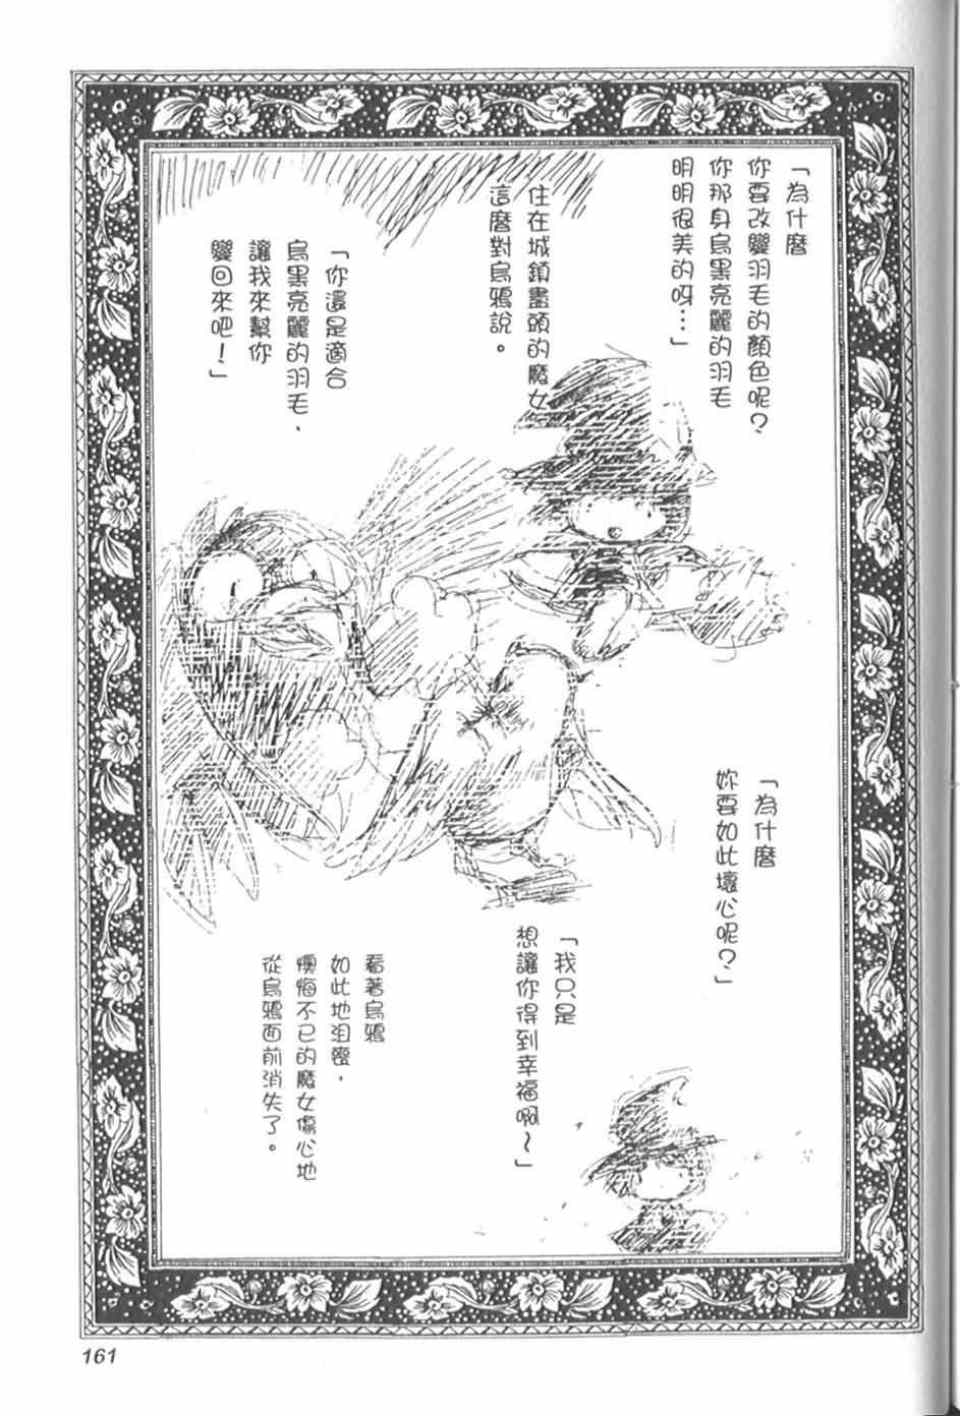 「為什麼
你要改變羽毛的顏色呢？
你那身烏黑亮麗的羽毛
明明很美的呀…」
住在城鎮盡頭的魔女
這麼對烏鴉說。
「你還是適合
烏黑亮麗的羽毛、
讓我來幫你
變回來吧！」
「為什麼
妳要如此壞心呢？」
「我只是
想讓你得到幸福啊～」
看著烏鴉
如此地沮喪，
懊悔不已的魔女傷心地
從烏鴉面前消失了。
161